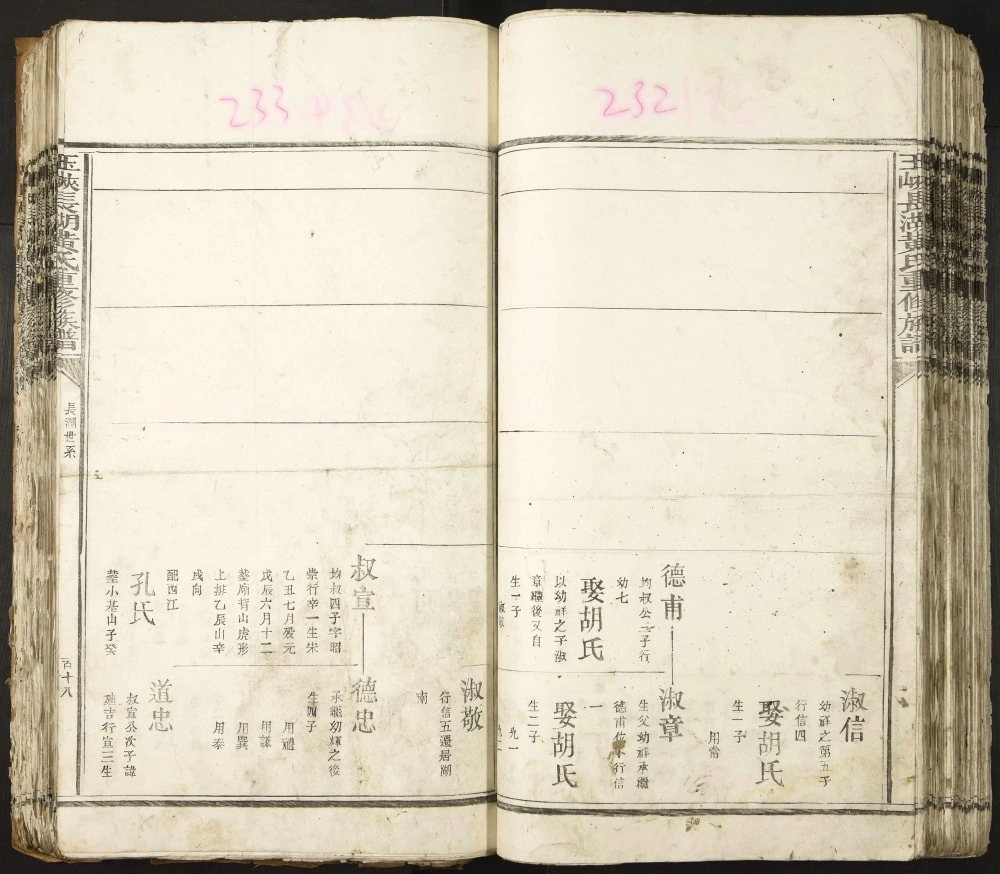 232
玉峽長湖黃氏重修族譜
淑信
幼祥之第五子
行信四
娶胡氏
生一子
用常
德甫
均叔公三子行
幼七
娶胡氏
以幼祥之子淑
章繼後又自
生一子
淑章
生父幼祥承繼
德甫位下行信
一
娶胡氏
生二子
233
淑敬
行信五遷居湖
南
叔宣
均叔四子字昭
崇行辛一生宋
乙丑七月歿元
戊辰六月十二
塟廟背山虎形
上排乙辰山辛
戌向
配西江
孔氏
塟小基山子癸
德忠
承繼幼輝之後
生四子
用禮
用謙
用巽
用泰
道忠
叔宣公次子諱
延吉行宣三生
玉峽長湖黃氏重修族譜
長湖世系
百十八